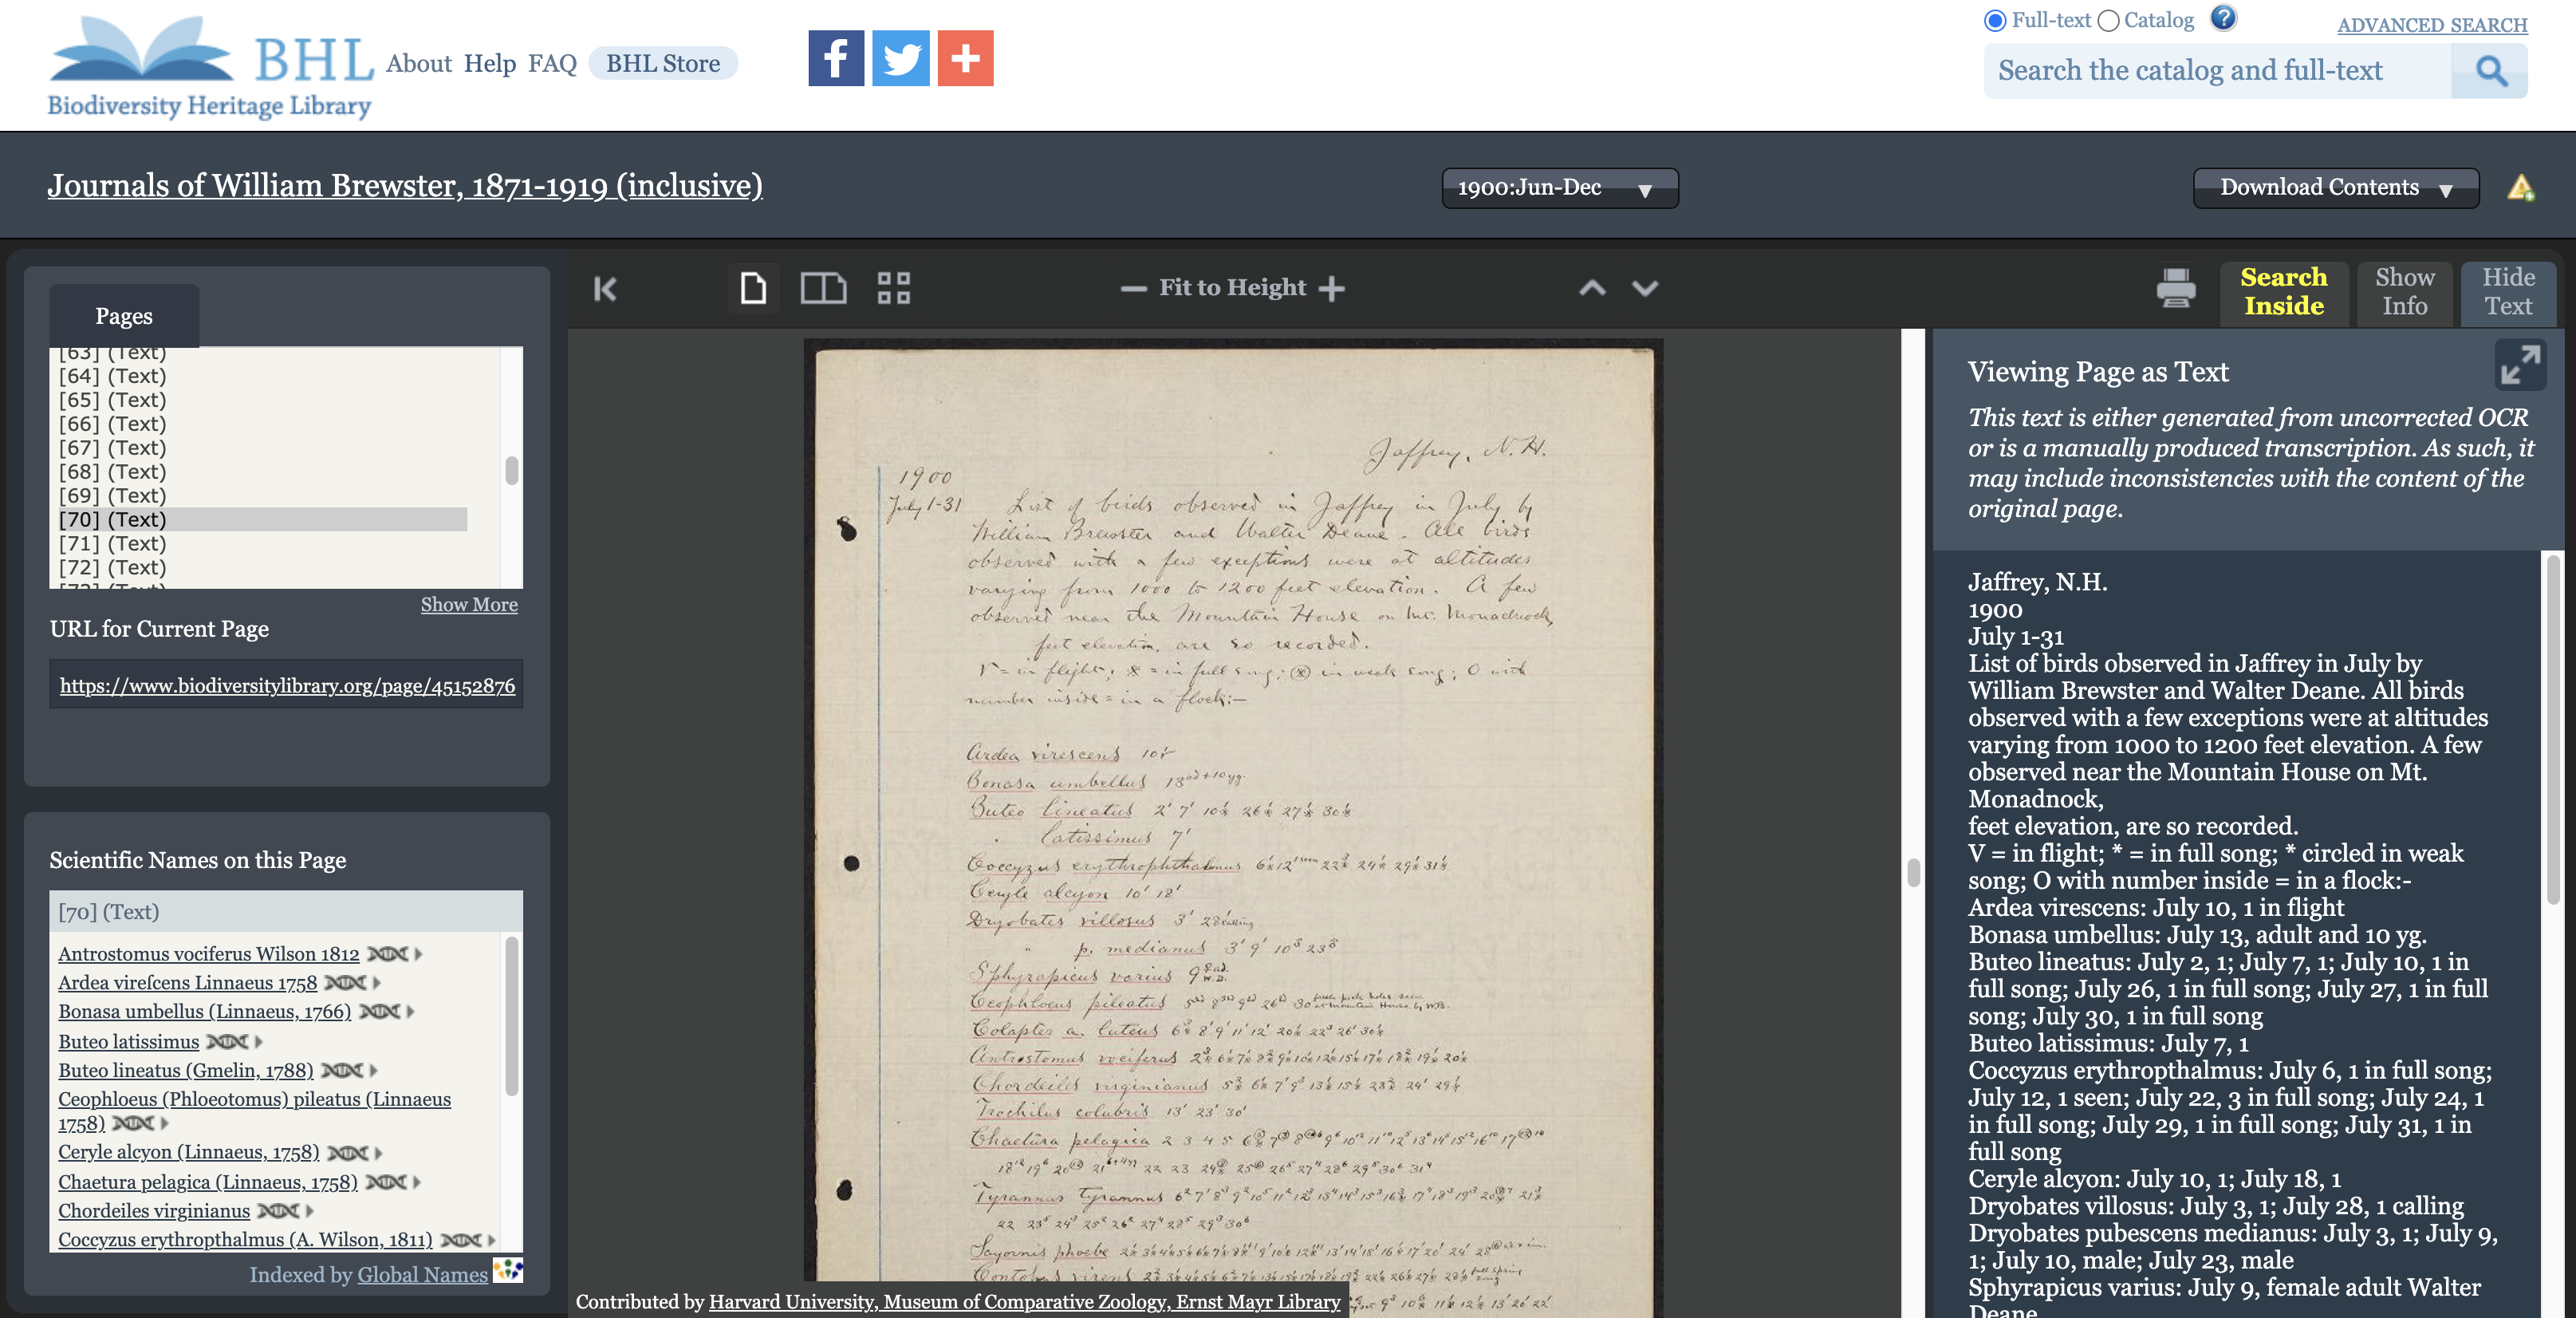 BHL
Biodiversity Heritage Library
About Help FAQ BHL Store
Full-text Catalog
ADVANCED SEARCH
Search the catalog and full-text
Journals of William Brewster, 1871-1919 (inclusive)
1900:Jun-Dec
Download Contents
Pages
[63] (Text)
[64] (Text)
[65] (Text)
[66] (Text)
[67] (Text)
[68] (Text)
[69] (Text)
[70] (Text)
[71] (Text)
[72] (Text)
Show More
URL for Current Page
https://www.biodiversitylibrary.org/page/45152876
Scientific Names on this Page
[70] (Text)
Antrostomus vociferus Wilson 1812
Ardea vireſcens Linnaeus 1758
Bonasa umbellus (Linnaeus, 1766)
Buteo latissimus
Buteo lineatus (Gmelin, 1788)
Ceophloeus (Phloeotomus) pileatus (Linnaeus
1758)
Ceryle alcyon (Linnaeus, 1758)
Chaetura pelagica (Linnaeus, 1758)
Chordeiles virginianus
Coccyzus erythropthalmus (A. Wilson, 1811)
Indexed by Global Names
Fit to Height
Search Inside
Show Info
Hide Text
Jaffrey, N.H.
1900
July 1-31 List of birds observed in Jaffrey in July by
William Brewster and Walter Deane. All birds
observed with a few exceptions were at altitudes
varying from 1000 to 1200 feet elevation. A few
observed near the Mountain House on Mt. Monadnock,
feet elevation, are so recorded.
V = in flight; * = in full song; in weak song; O with
number inside = in a flock:-
Ardea virescens 10
Bonasa umbellus 13 ad + 10 yg.
Buteo lineatus 2 7 10 26 27 30
latissimus 7
Coccyzus erythrophthalmus 6 12 22 24 29 31
Ceryle alcyon 10 18
Dryobates villosus 3 28 calling
" p. medianus 3 9 10 23
Sphyrapicus varius 9 ad. W.D.
Ceophloeus pileatus 5 8 9 26 30
Colaptes a. luteus 6 8 9 11 12 20 22 26 30
Antrostomus vociferus 2 6 7 8 9 10 12 15 17 18 19 20
Chordeiles virginianus 5 6 7 9 13 15 23 24 29
Trochilus colubris 13 23 30
Chaetura pelagica 2 3 4 5 6 7 8 9 10 11 12 13 14 15 16 17
18 19 20 21 22 23 24 25 26 27 28 29 30 31
Tyrannus tyrannus 6 7 8 9 10 11 12 13 14 15 16 17 18 19 20 21
22 23 24 25 26 27 28 29 30
Sayornis phoebe 2 3 4 5 6 7 8 9 10 12 13 14 15 16 17 20 24 28
Contopus virens 2 3 4 5 6 7 13 15 17 18 19 22 26 27 28
9 10 11 12 13 20 22
Contributed by Harvard University, Museum of Comparative Zoology, Ernst Mayr Library
Viewing Page as Text
This text is either generated from uncorrected OCR
or is a manually produced transcription. As such, it
may include inconsistencies with the content of the
original page.
Jaffrey, N.H.
1900
July 1-31
List of birds observed in Jaffrey in July by
William Brewster and Walter Deane. All birds
observed with a few exceptions were at altitudes
varying from 1000 to 1200 feet elevation. A few
observed near the Mountain House on Mt.
Monadnock,
feet elevation, are so recorded.
V = in flight; * = in full song; * circled in weak
song; O with number inside = in a flock:-
Ardea virescens: July 10, 1 in flight
Bonasa umbellus: July 13, adult and 10 yg.
Buteo lineatus: July 2, 1; July 7, 1; July 10, 1 in
full song; July 26, 1 in full song; July 27, 1 in full
song; July 30, 1 in full song
Buteo latissimus: July 7, 1
Coccyzus erythropthalmus: July 6, 1 in full song;
July 12, 1 seen; July 22, 3 in full song; July 24, 1
in full song; July 29, 1 in full song; July 31, 1 in
full song
Ceryle alcyon: July 10, 1; July 18, 1
Dryobates villosus: July 3, 1; July 28, 1 calling
Dryobates pubescens medianus: July 3, 1; July 9,
1; July 10, male; July 23, male
Sphyrapicus varius: July 9, female adult Walter
Deane